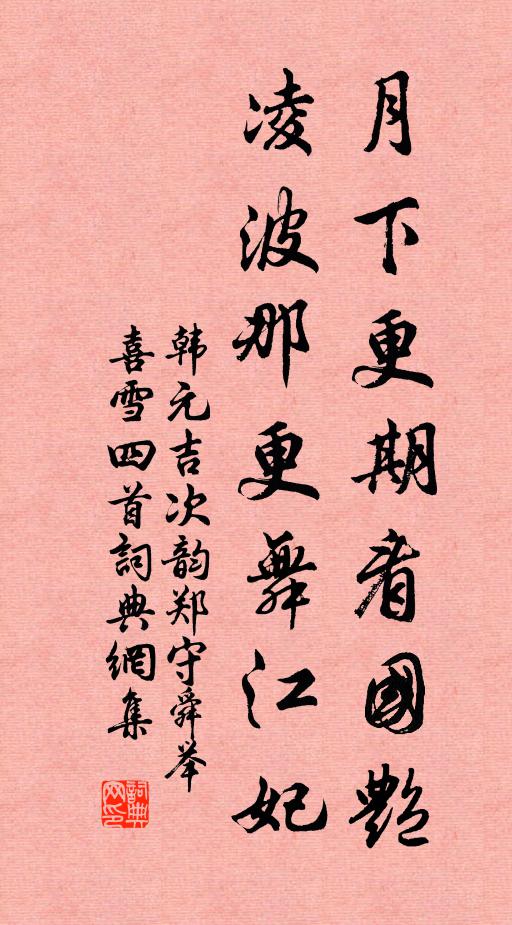 月下更期看國艷
凌波那更舞江妃
韩元吉次韵郑守舜举
喜雪四首詞典網集
詞典网印